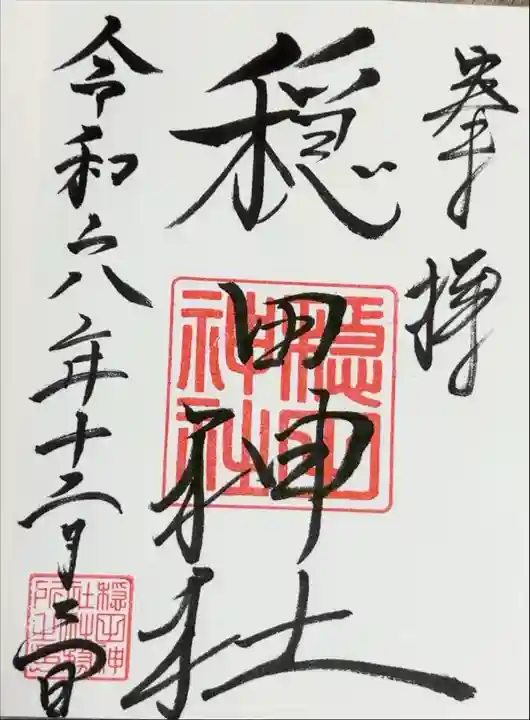 奉拝
穏田神社
穏田神社
令和六年十二月三日
穏田神社社務所之印